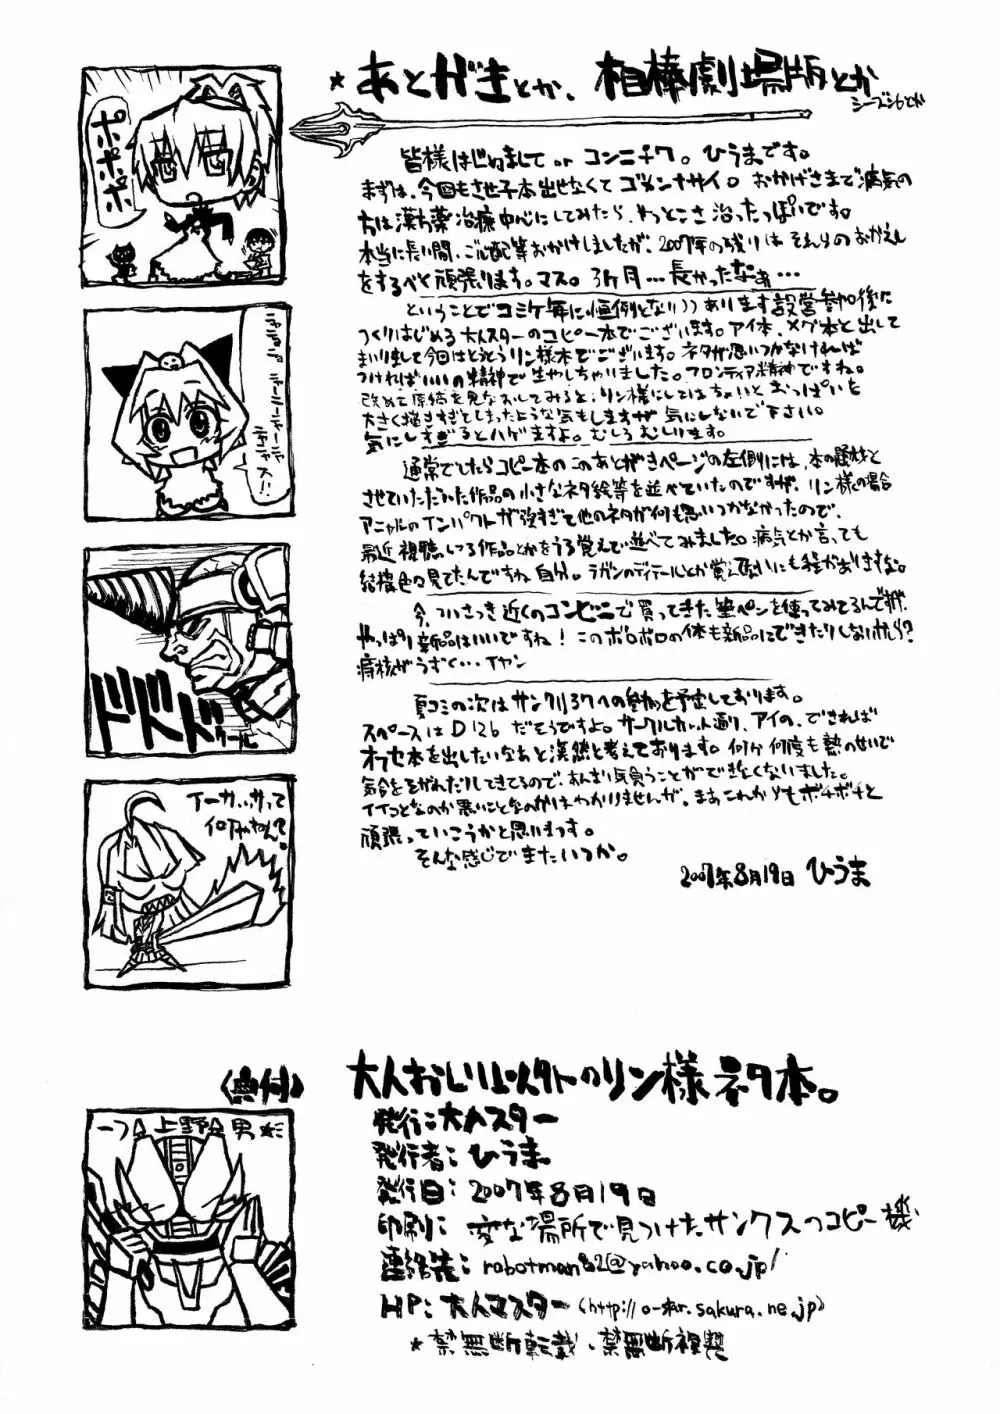 ★あとがきとか、相棒劇場版とか
シーズン6とか
皆様はじめまして or コンニチワ。ひうまです。
まずは、今回もさせ子本出せなくてゴメンナサイ。おかげさまで病気の
方は漢方薬治療中心にしてみたら、やっとこさ治ったっぽいです。
本当に長い間、ご心配等おかけしましたが、2007年の残りはそれらのおかえし
をするべく頑張ります。マス。3ヶ月…長かったなぁ…
ということでコミケ毎に恒例となり))あります設営参加後に
つくりはじめる大人スターのコピー本でございます。アイ本、メグ本と出して
まいりまして今回はとうとうリン様本でございます。ネタが思いつかなければ
つければいいの精神で生やしちゃいました。フロンティア精神ですね。
改めて原稿を見なおしてみると、リン様にしてはちょいとおっぱいを
大きく描きすぎてしまったような気もしますが気にしないで下さい。
気にしすぎるとハゲますよ。むしろむしります。
通常でしたらコピー本のこのあとがきページの左側には、本の題材と
させていただいた作品の小さなネタ絵等を並べていたのですが、リン様の場合
アニャルのインパクトが強すぎて他のネタが何も思いつかなかったので、
最近視聴している作品とかをうる覚えで並べてみました。病気とか言っても
結構色々見てたんですね自分。ラガンのディテールとか覚えてないにも程がありすぎな。
今、ついさっき近くのコンビニで買ってきた筆ペンを使ってみてるんですが、
やっぱり新品はいいですね！このボロボロの体も新品にできたりしないかしら？
痔核がうずく…イヤン
夏コミの次はサンクリ37への参加を予定しております。
スペースは D12b だそうですよ。サークルカット通り、アイの、できれば
オフセ本を出したいなぁと漠然と考えております。何分何度も熱のせいで
気合をそがれたりしてきてるので、あんまり気負うことができなくないました。
イイことなのか悪いことなのかはわかりませんが、まぁこれからもボチボチと
頑張っていこうかと思います。
そんな感じでまたいつか。
2007年8月19日 ひうま
ポポポポ
ニャーニャーニャーニャ
ニャス!!
ドドドド
ドゥール
イーサ、サって
何やねん?
〈奥付〉
一つ星上野星男★ミ
大人おしり以外のリン様ネタ本。
発行：大人スター
発行者：ひうま
発行日：2007年8月19日
印刷：変な場所で見つけたサンクスのコピー機
連絡先：robotman82@yahoo.co.jp/
HP：大人マスター(http://o-star.sakura.ne.jp)
★禁無断転載、禁無断複製